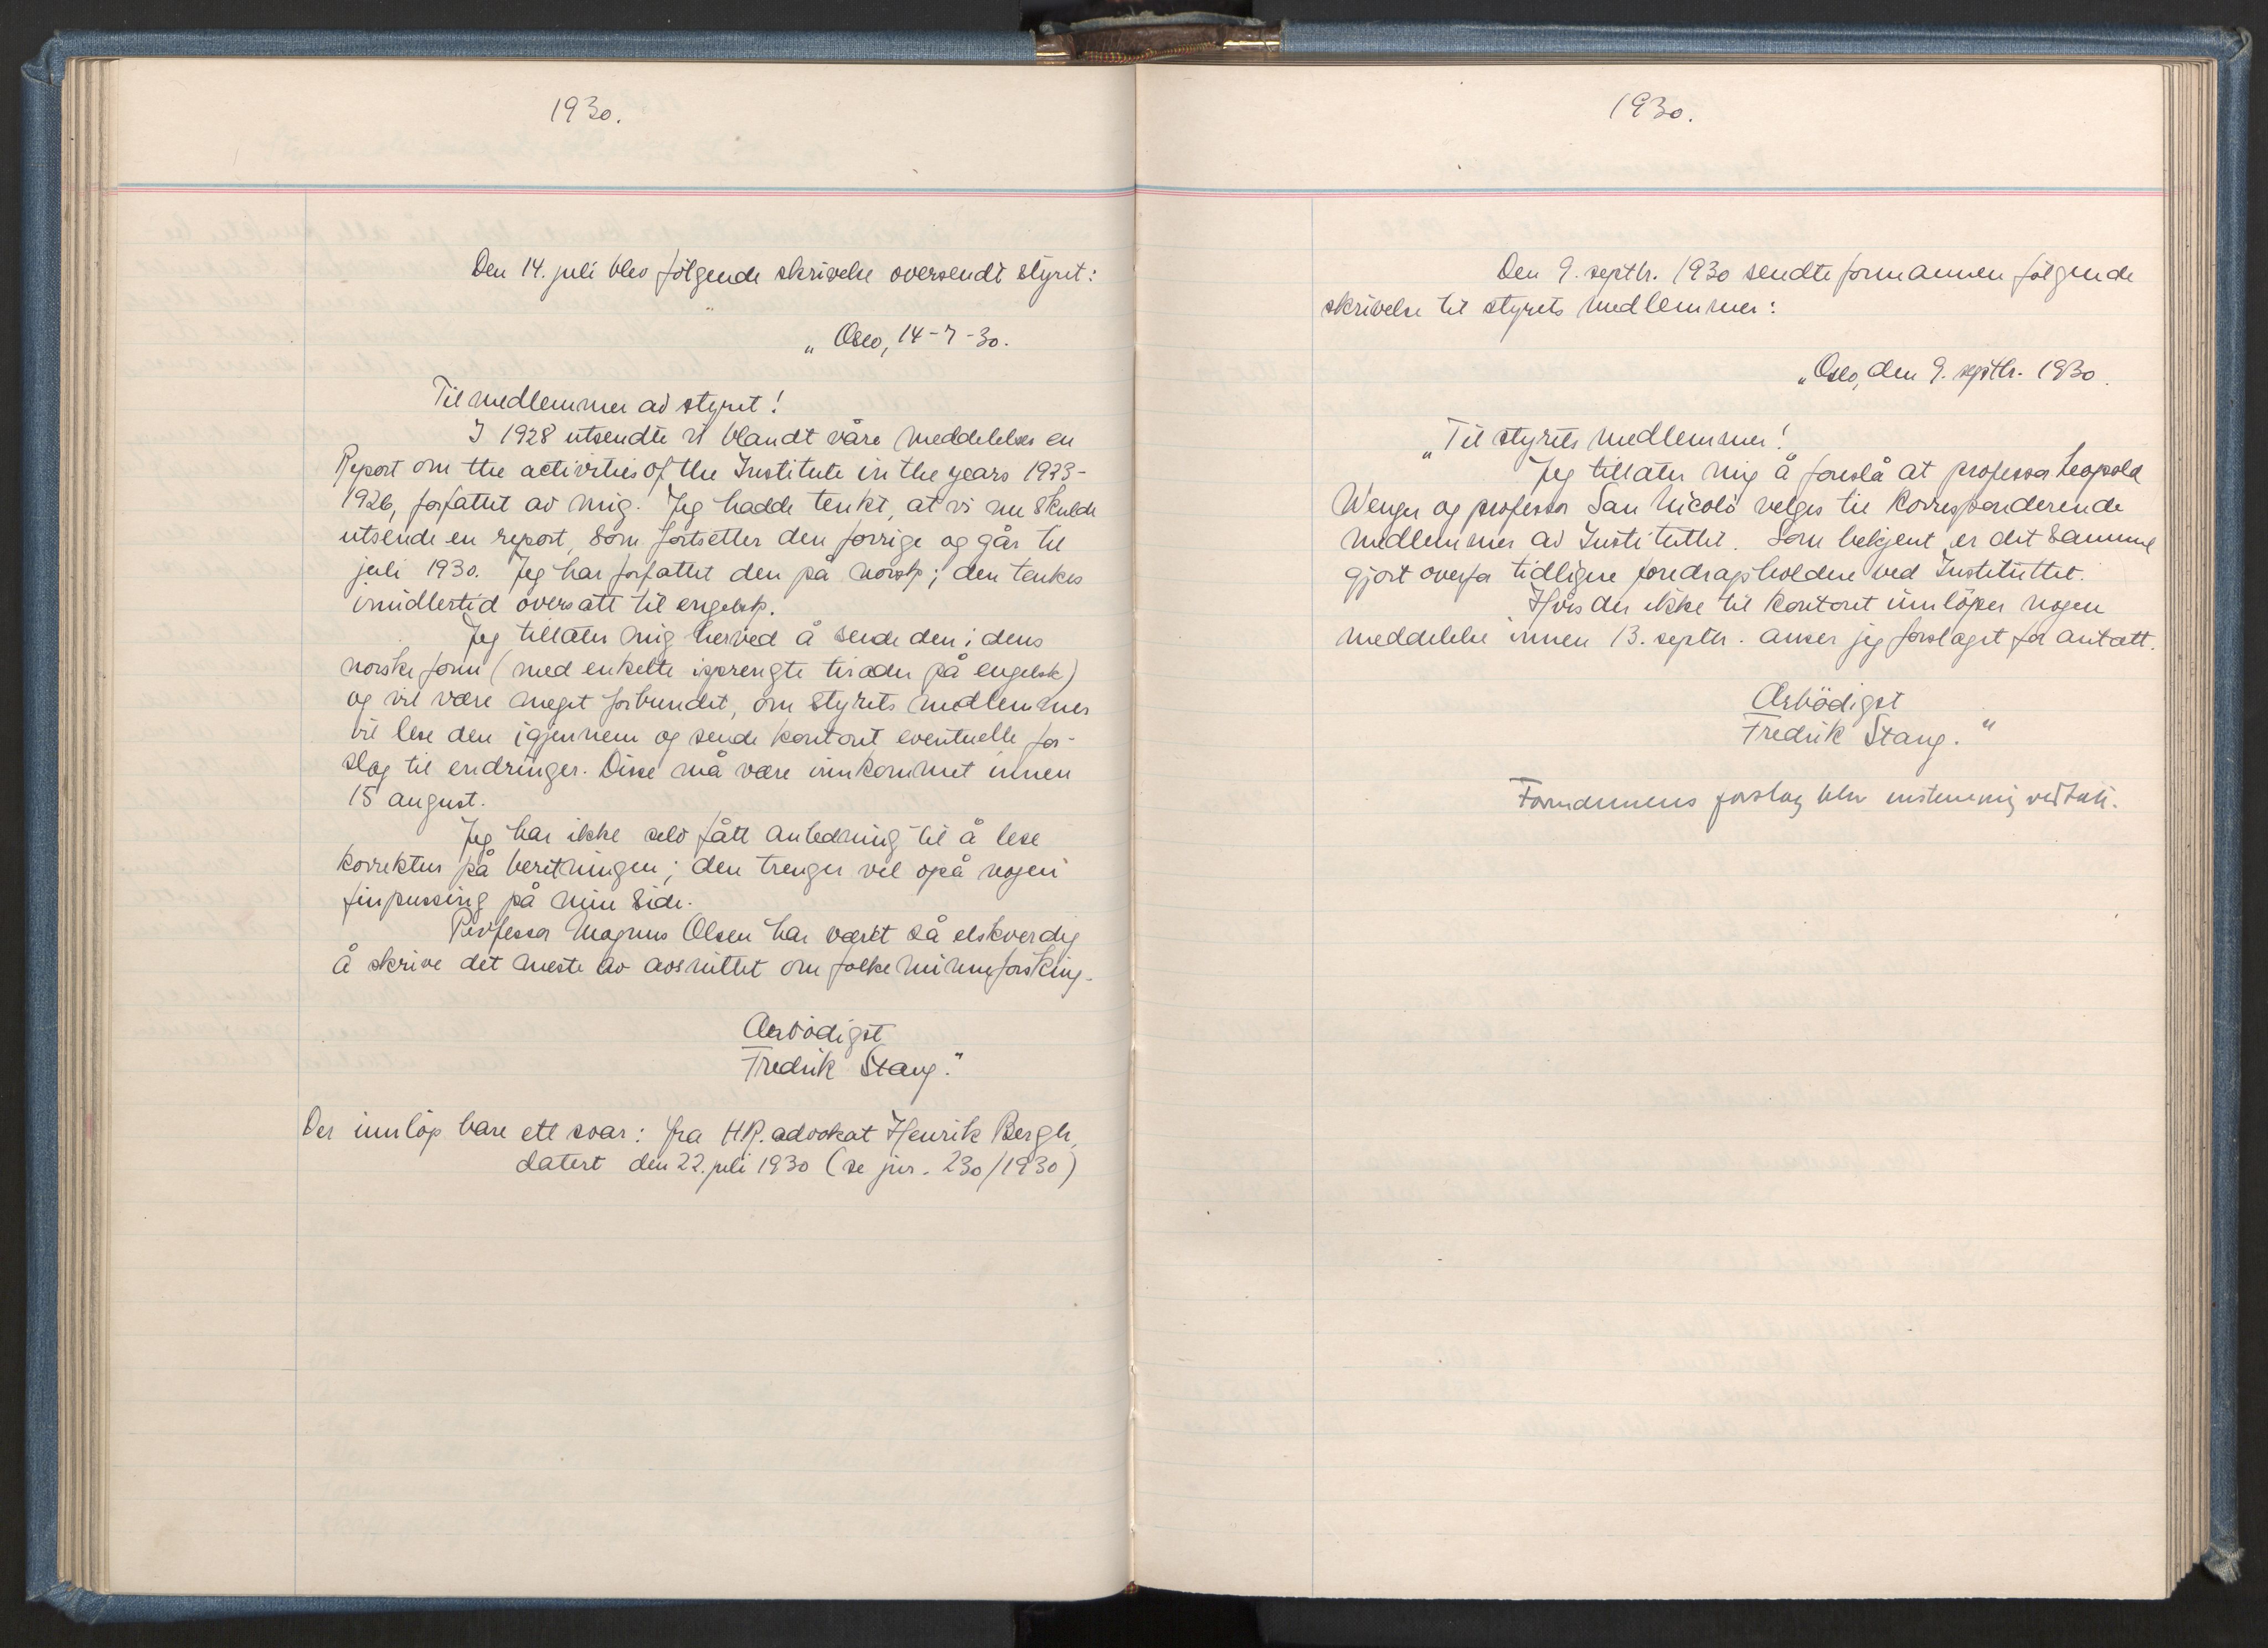 1930.
Den 14. juli blev følgende skrivelse oversendt styret:
„Oslo, 14-7-30.
Til medlemmer av styret!
I 1928 utsendte vi blandt våre meddelelser en
Report om the activities of the Institute in the years 1923-
1926, forfattet av mig. Jeg hadde tenkt, at vi nu skulde
utsende en report, som fortsetter den forrige og går til
juli 1930. Jeg har forfattet den på norsk; den tenkes
imidlertid oversatt til engelsk.
Jeg tillater mig herved å sende den i dens
norske form (med enkelte isprengte tirader på engelsk)
og vil være meget forbundet, om styrets medlemmer
vil lese den igjennem og sende kontoret eventuelle for-
slag til endringer. Disse må være innkommet innen
15 august.
Jeg har ikke selv fått anledning til å lese
korrektur på beretningen; den trenger vel også nogen
finpussing på min side.
Professor Magnus Olsen har vært så elskverdig
å skrive det meste av avsnittet om folkeminneforsking.
Ærbödigst
Fredrik Stang."
Der innløp bare ett svar: fra H.R. advokat Henrik Bergh,
datert den 22. juli 1930 (se jnr. 230/1930)
1930.
Den 9. septbr. 1930 sendte formannen følgende
skrivelse til styrets medlemmer:
„Oslo, den 9. septbr. 1930.
„Til styrets medlemmer!
Jeg tillater mig å foreslå at professor Leopold
Wenger og professor San Nicolò velges til korresponderende
medlemmer av Instituttet. Som bekjent er det samme
gjort overfor tidligere foredragsholdere ved Instituttet.
Hvis der ikke til kontoret innlöper nogen
meddelelse innen 13. septbr. anser jeg forslaget for antatt.
Ærbödigst
Fredrik Stang."
Formannens forslag blev enstemmig vedtatt.